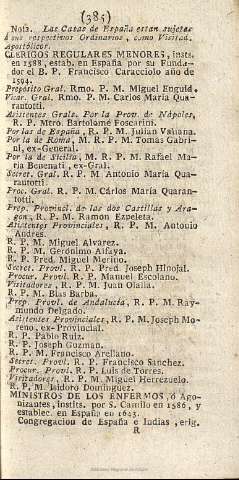 (385)
Nota. Las Casas de España estan sujetas
á sus respectivos Ordinarios, como Visitad.
Apostólicos.
CLERIGOS REGULARES MENORES, insts.
en 1588, estab. en España por su Funda-
dor el B. P. Francisco Caracciolo año de
1594.
Prepósito Gral. Rmo. P. M. Miguel Enguid.
Vicar. Gral. Rmo. P. M. Carlos María Qua-
rantotti.
Asistentes Grals. Por la Prov. de Nápoles,
R. P. Mtro. Bartolomé Foscarini.
Por las de España, R. P. M. Julian
Por la de Roma, M. R. P. M. Tomás Gabri-
ni, ex-General.
Por la de Sicilia, M. R. P. M. Rafael Ma-
ría Benenati, ex-Gral.
Secret. Gral. R. P. M. Antonio María Qua-
rantotti.
Proc. Gral. R. P. M. Cárlos María Quaran-
totti.
Prep. Provincl. de las dos Castillas y Ara-
gon, R. P. M. Ramon Ezpeleta.
Asistentes Provinciales, R. P. M. Antonio
Andres.
R. P. M. Miguel Alvarez.
R. P. M. Gerónimo Alfaya.
R. P. Pred. Miguel Merino.
Secret. Provl. R. P. Pred. Joseph Hinojal.
Procur. Provl. R. P. Manuel Escolano.
Visitadores, R. P. M. Juan Olalla.
R. P. M. Blas Barba.
Prep. Provl. de Andalucía, R. P. M. Ray-
mundo Delgado.
Asistentes Provinciales, R. P. M. Joseph Mo-
reno, ex-Provincial.
R. P. Pablo Ruiz.
R. P. Joseph Guzman.
R. P. M. Francisco Arellano.
Secret. Provl. R. P. Francisco Sanchez.
Procur. Provl. R. P. Luis de Torres.
Visitadores, R. P. M. Miguel Herrezuelo.
R. P. M. Isidoro Dominguez.
MINISTROS DE LOS ENFERMOS, ó Ago-
nizantes, instits. por S. Camilo en 1586, y
establec. en España en 1643.
Congregacion de España é Indias, erig.
R